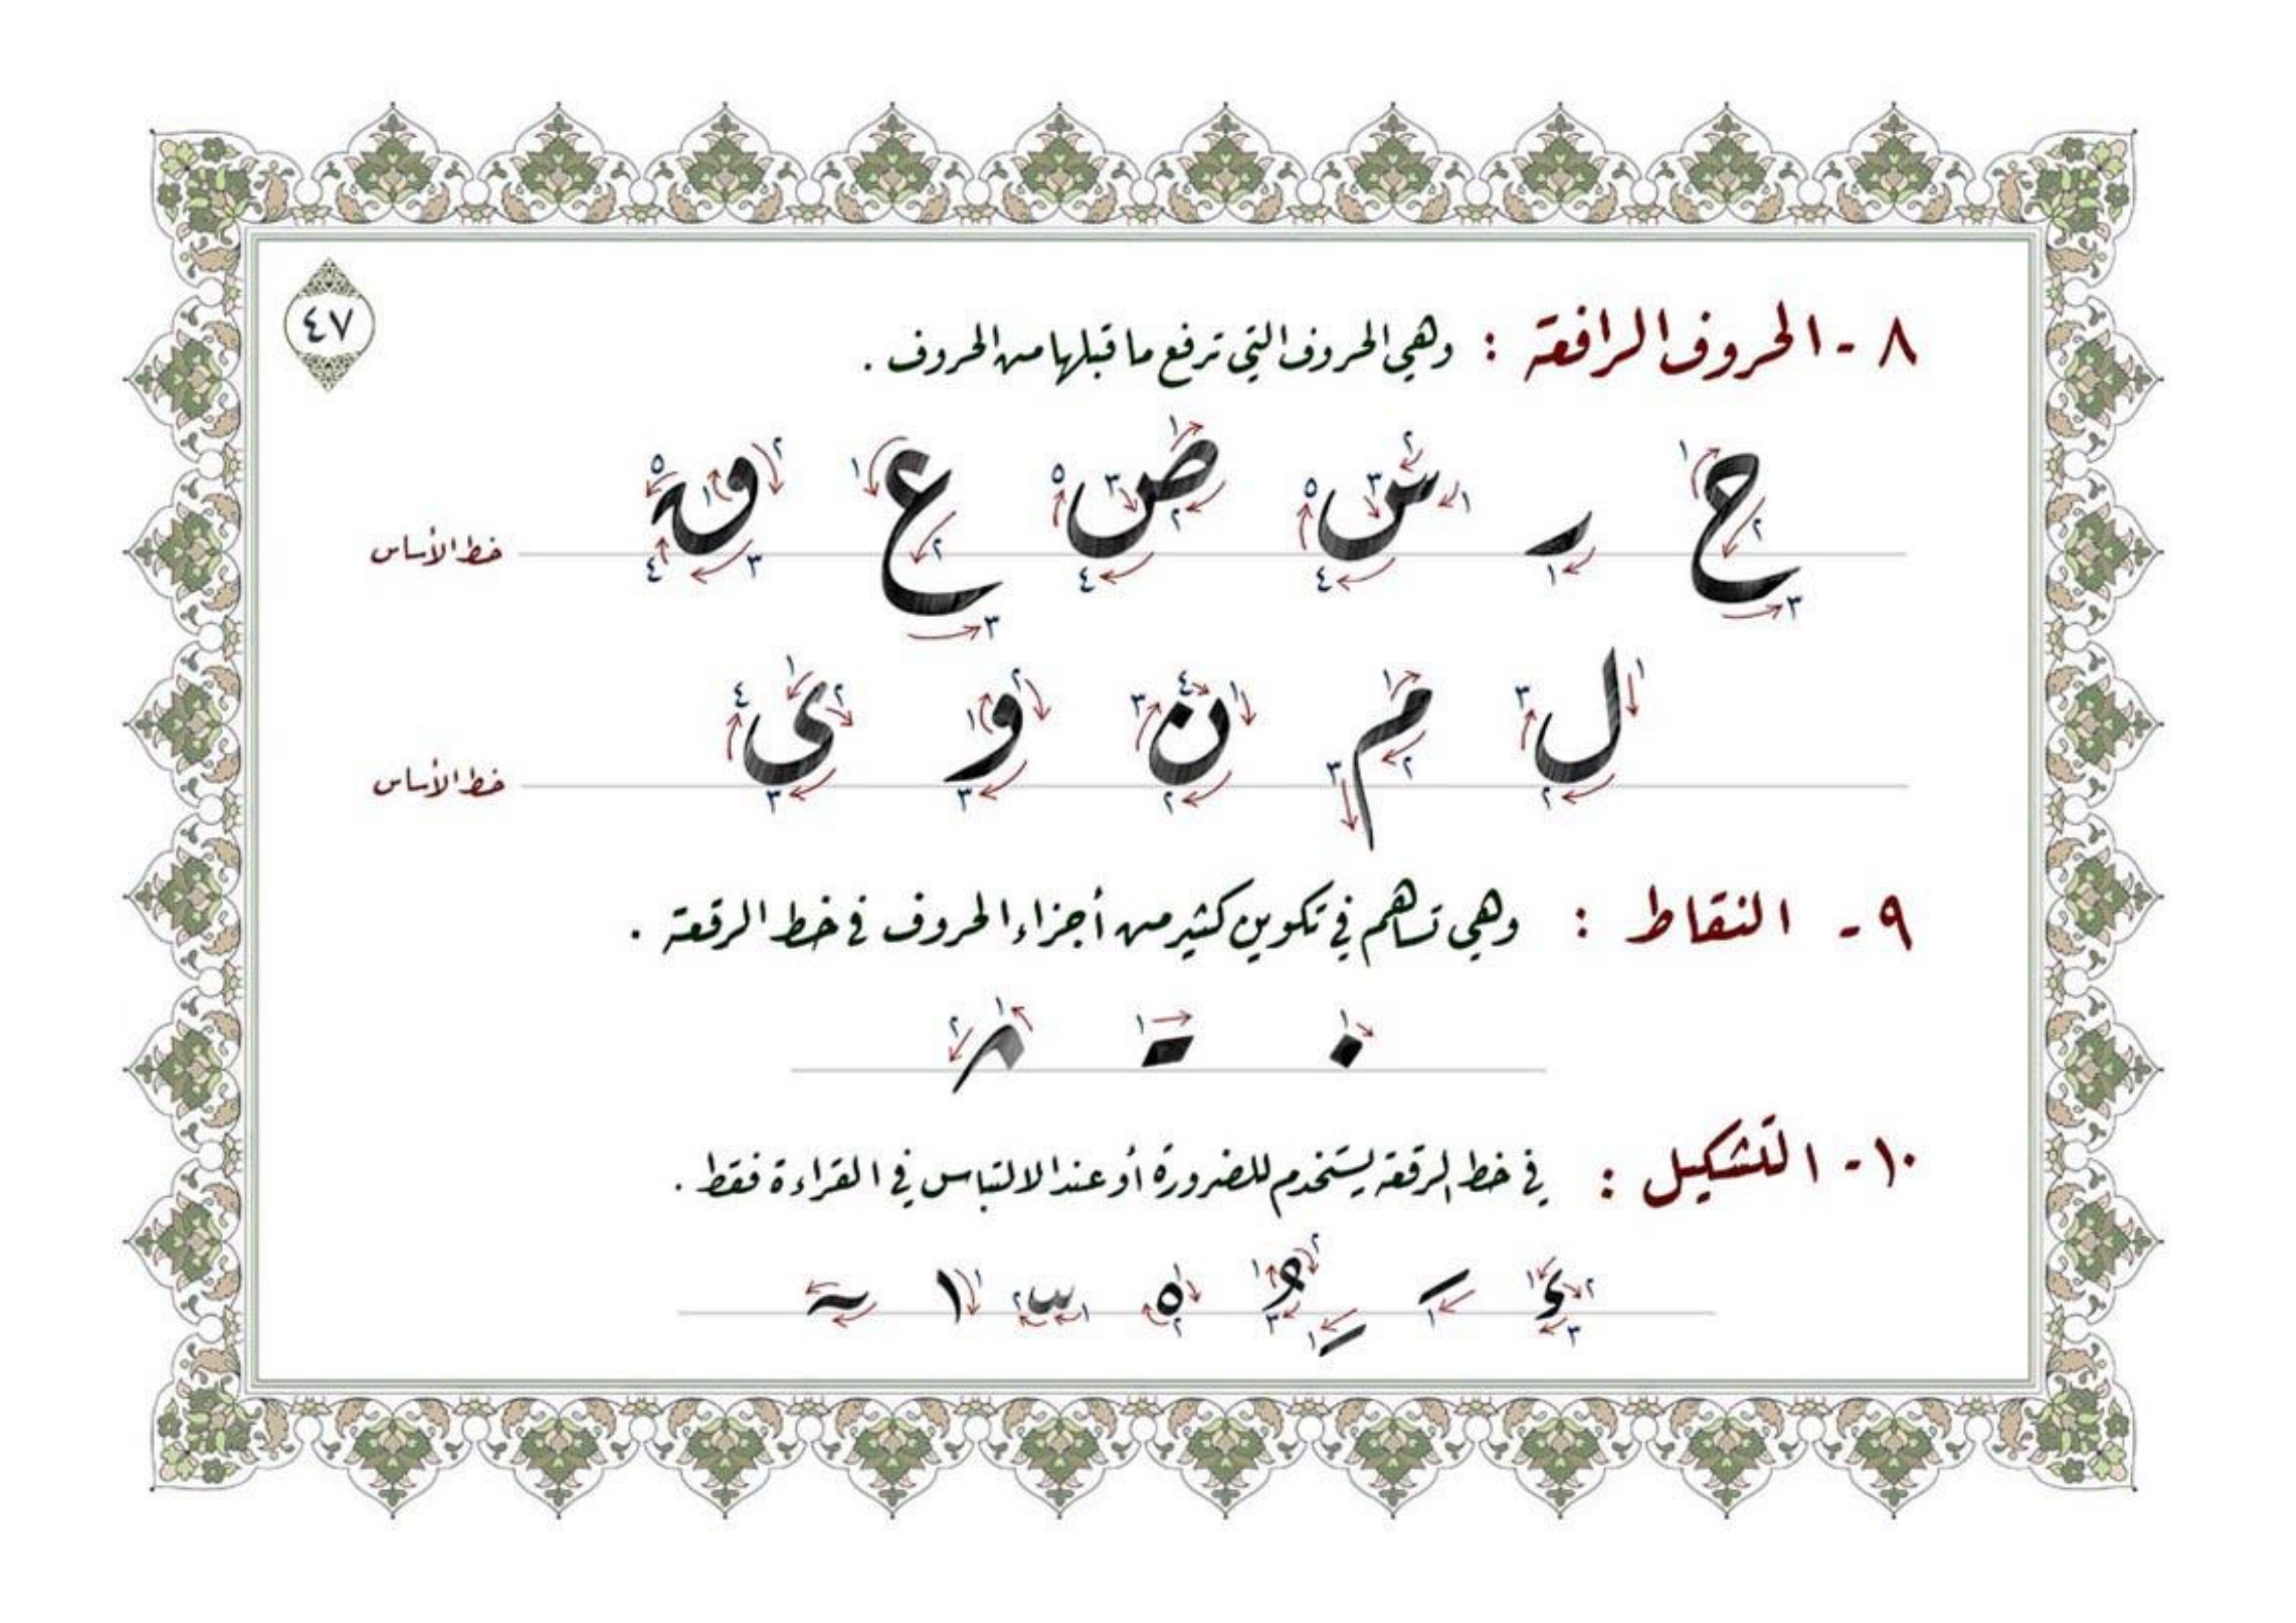 ٤٧
٨ - الحروف الرافعة : وهي الحروف التي ترفع ما قبلها من الحروف .
ح ر س ص ع ق
خط الأساس
ل م ن و ى
خط الأساس
٩ - النقاط : وهي تساهم في تكوين كثير من أجزاء الحروف في خط الرقعة .
١٠ - التّشكيل : في خط الرقعة يستخدم للضرورة أو عند الالتباس في القراءة فقط .